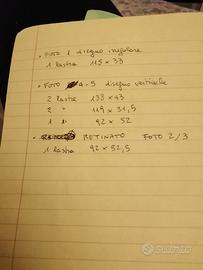 • FOTO 1 disegno irregolare
1 lastra 115 x 33
• FOTO 4-5 disegno verticale
2 lastre 133 x 43
2 " 119 x 31,5
1 " 92 x 52
• RETINATO FOTO 2/3
1 lastra 92 x 52,5
Subito.it